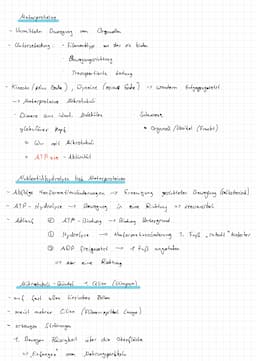 Motorproteine
- Vermitteln Bewegung von Organellen
- Unterscheidung: - Filamenttyp an den sie binden
Bewegungsrichtung
Transportierte Ladung
- Kinesin (plus Ende), Dyneine (minus Ende) → wandern entgegengesetzt
→ Motorproteine Mikrotubuli
- Dimere aus 2 Schwänze
globulärer Kopf • Organell / Vesikel (Fracht)
• WW mit Mikrotubuli
• ATPase - Aktivität
Nukleotidhydrolyse bei Motorproteinen
- Abfolge Konformationsänderungen → Erzeugung gerichteter Bewegung
- ATP - Hydrolyse → Bewegung in eine Richtung → irreversibel
- Ablauf ① ATP - Bindung → Bindung Untergrund
② Hydrolyse → Konformationsänderung 1. Fuß
③ ADP freigesetzt → 1 Fuß
⇒ nur eine Richtung
Mikrotubuli - Bündel: Cilien (Wimpern)
- auf fast allen tierischen Zellen
- meist mehrere Cilien
- erzeugen Strömungen
1. Bewegen Flüssigkeit über die Oberfläche
⇒ "Einfangen" von Nahrungspartikeln